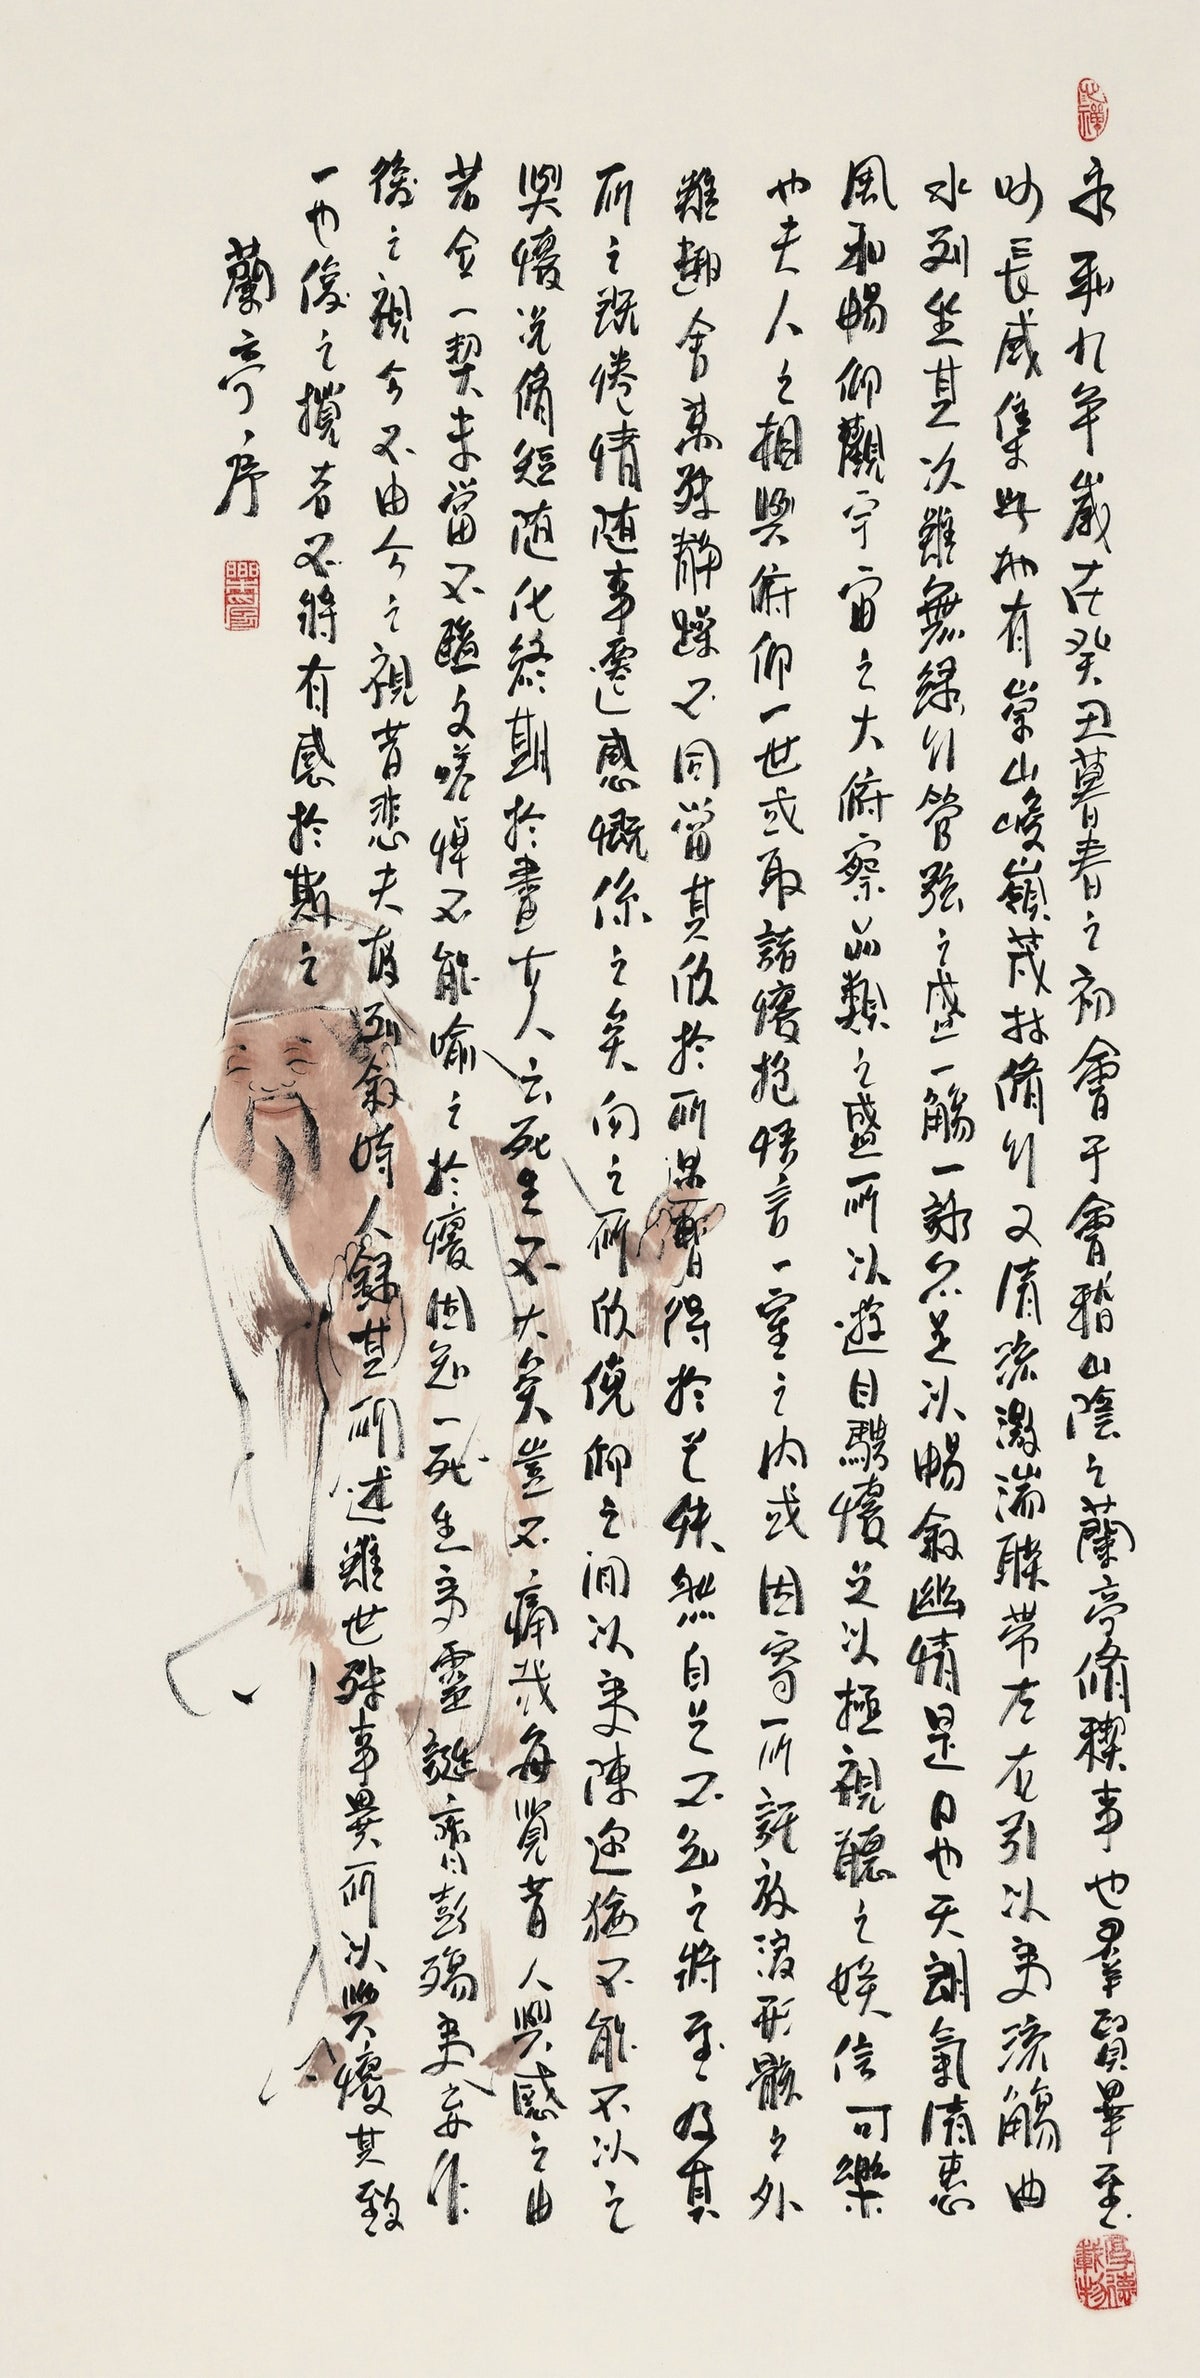 永和九年歲在癸丑暮春之初會于會稽山陰之蘭亭脩禊事也羣賢畢至
少長咸集此地有崇山峻嶺茂林脩竹又清流激湍暎帶左右引以為流觴曲
水列坐其次雖無絲竹管弦之盛一觴一詠亦足以暢叙幽情是日也天朗氣清惠
風和暢仰觀宇宙之大俯察品類之盛所以遊目騁懷足以極視聽之娛信可樂
也夫人之相與俯仰一世或取諸懷抱悟言一室之內或因寄所託放浪形骸之外
雖趣舍萬殊靜躁不同當其欣於所遇暫得於己快然自足不知之將至及其
所之既惓情隨事遷感慨係之矣向之所欣俛仰之間以為陳迹猶不能不以之
興懷況脩短隨化終期於盡古人云死生亦大矣豈不痛哉每覽昔人興感之由
若合一契未嘗不臨文嗟悼不能喻之於懷固知一死生為虛誕齊彭殤為妄作
後之視今亦由今之視昔悲夫故列叙時人錄其所述雖世殊事異所以興懷其致
一也後之攬者亦將有感於斯之
蘭亭序
厚德載物